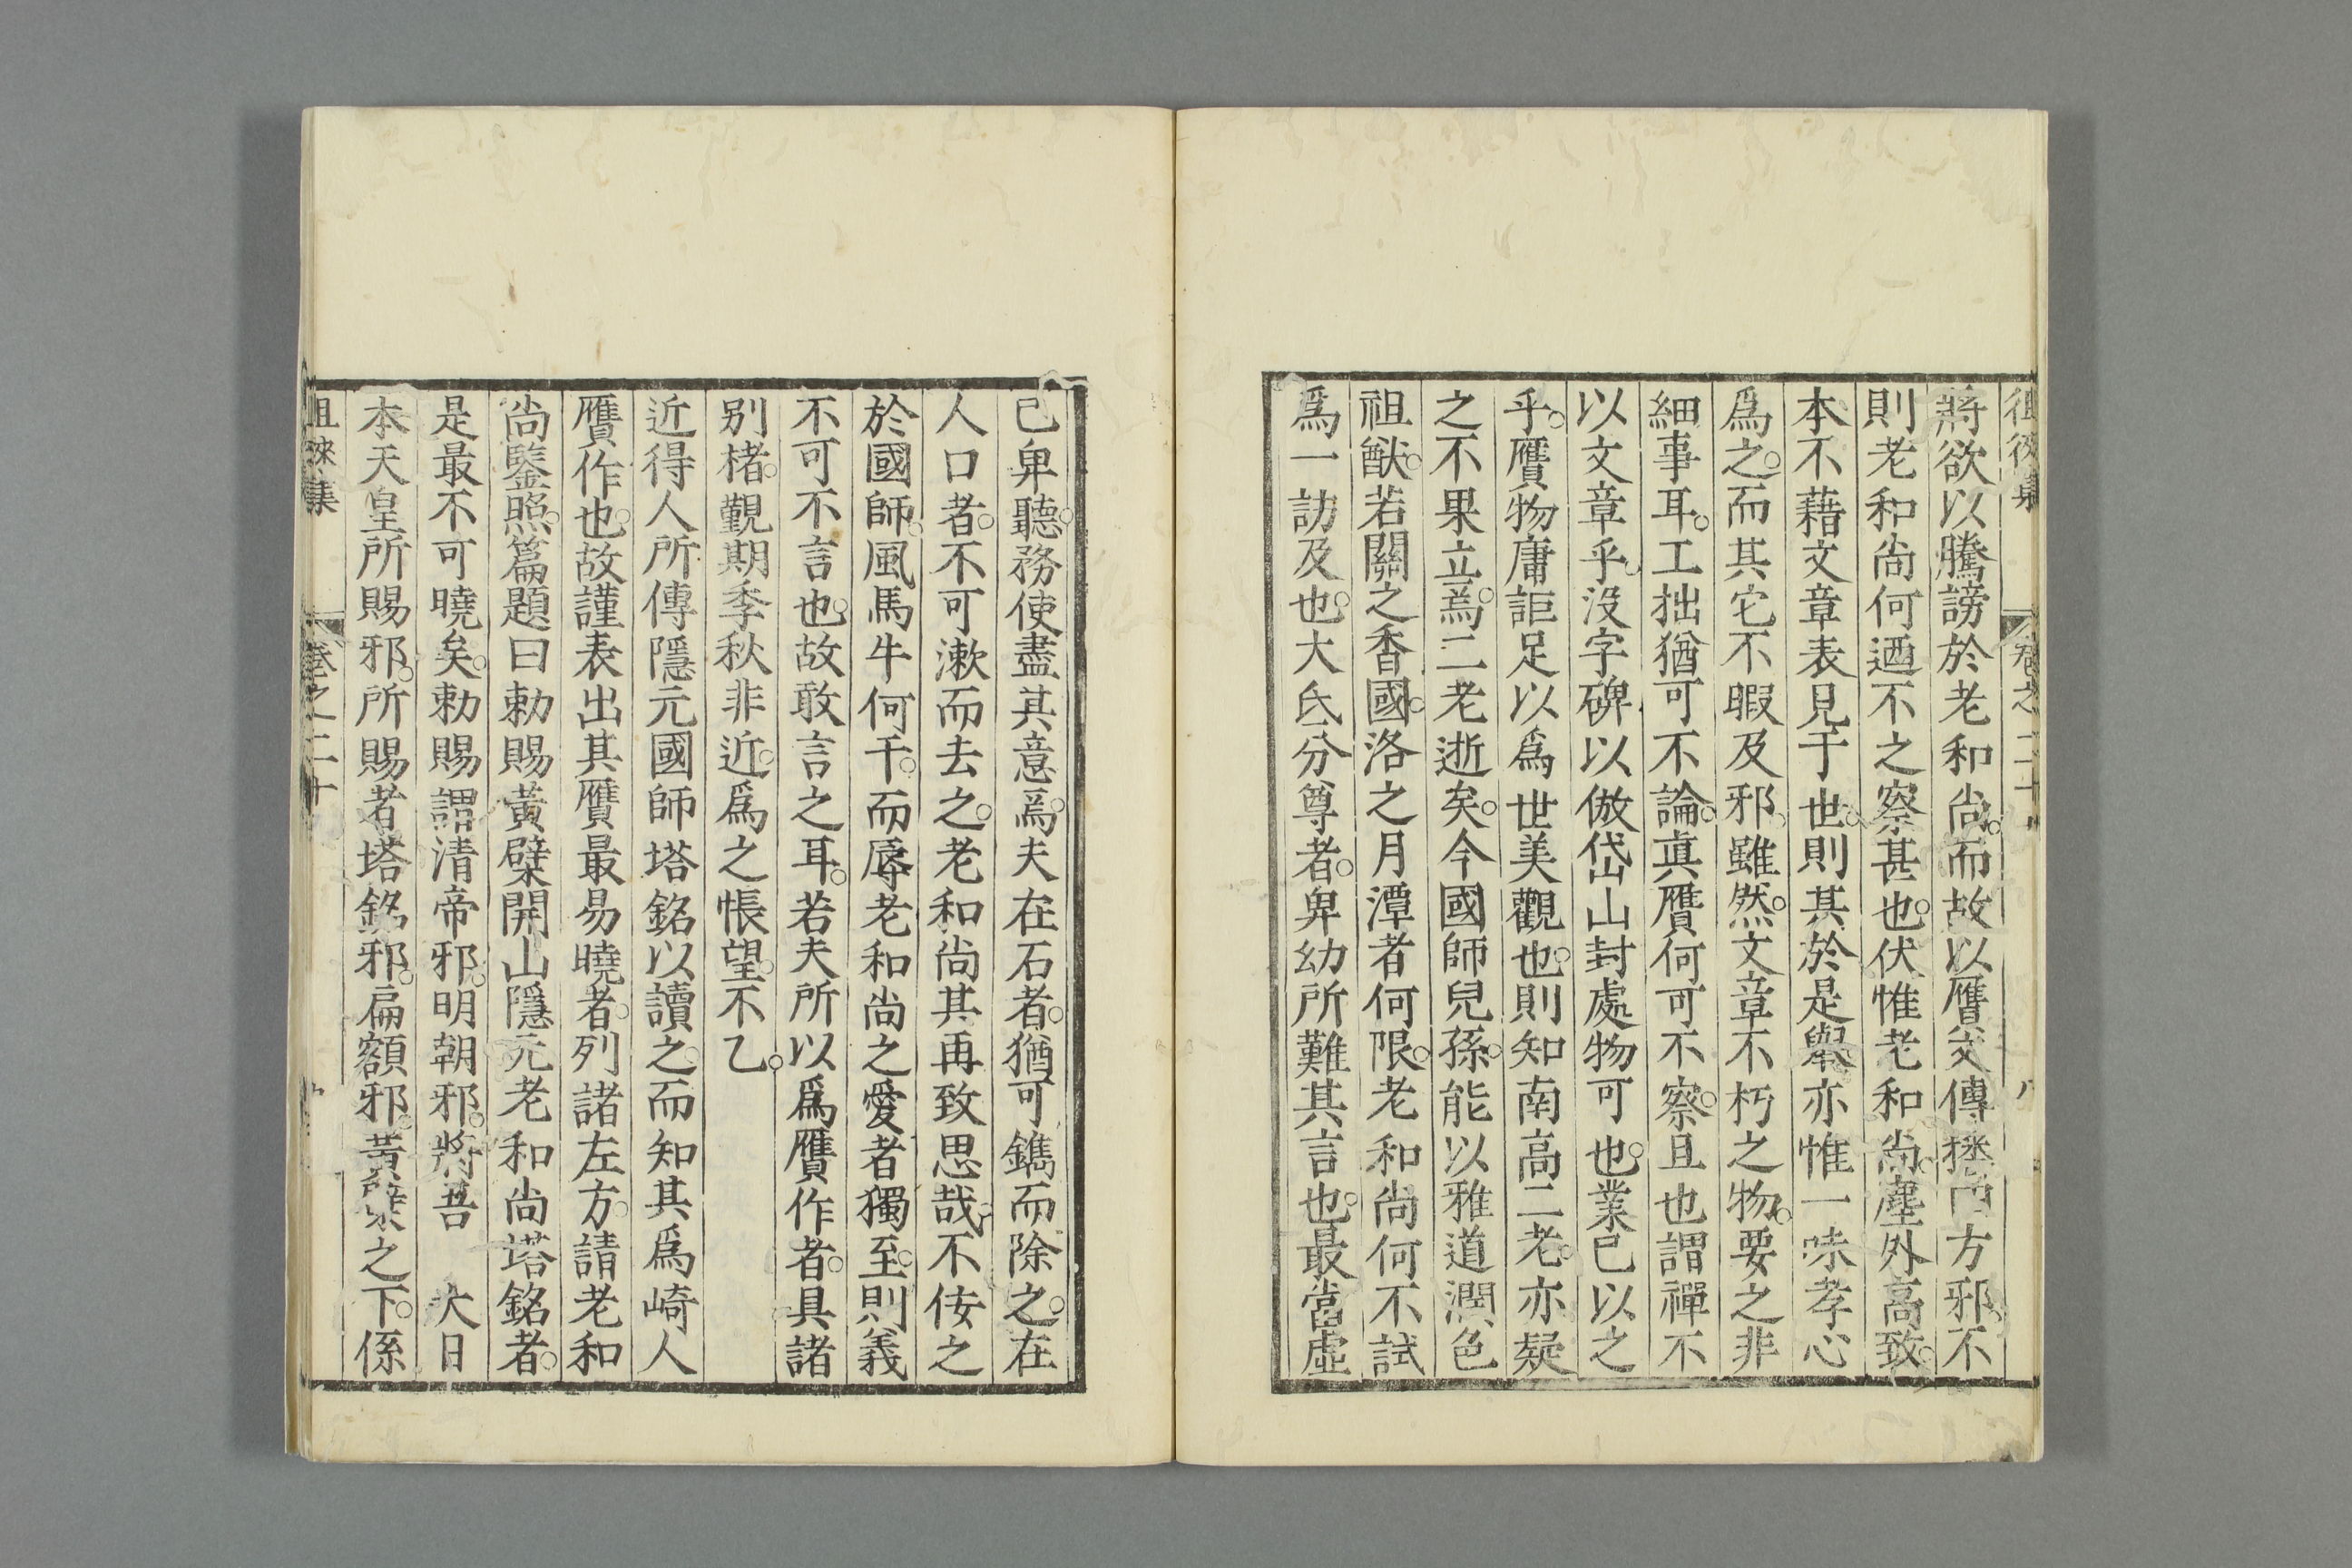 徂徠集 卷之二十 八
將欲以騰謗於老和尚。而故以贋文傳播四方邪。不
則老和尚何迺不之察甚也。伏惟老和尚。塵外高致。
本不藉文章表見于世。則其於是舉。亦惟一味孝心
爲之。而其它不暇及邪。雖然。文章不朽之物。要之非
細事耳。工拙猶可不論。眞贋何可不察。且也謂禪不
以文章乎。沒字碑以倣岱山封處物可也。業已以之
乎。贋物庸詎足以爲世美觀也。則知南高二老。亦疑
之不果立焉。二老逝矣。今國師兒孫。能以雅道潤色
祖猷。若關之香國。洛之月潭者何限。老和尚何不試
爲一訪及也。大氐分尊者。卑幼所難其言也。最當虛
己卑聽。務使盡其意焉。夫在石者。猶可鐫而除之。在
人口者。不可漱而去之。老和尚其再致思哉。不佞之
於國師。風馬牛何干。而辱老和尚之愛者獨至。則義
不可不言也。故敢言之耳。若夫所以爲贋作者。具諸
別楮。覿期季秋非近。爲之悵望。不乙。
近得人所傳隱元國師塔銘以讀之。而知其爲崎人
贋作也。故謹表出其贋最易曉者。列諸左方。請老和
尚鑒照。篇題曰勅賜黃檗開山隱元老和尚塔銘者。
是最不可曉矣。勅賜謂清帝邪。明朝邪。將吾　大日
本天皇所賜邪。所賜者塔銘邪。扁額邪。黃檗之下。係
徂徠集 卷之二十